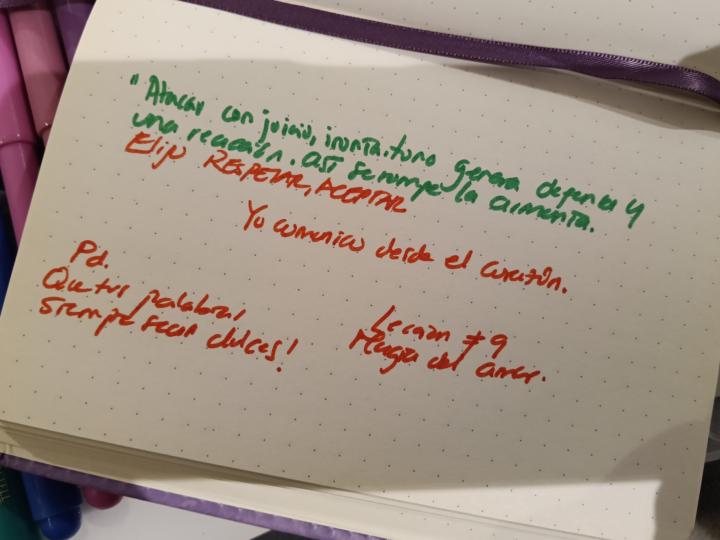 "Atacar con juicio, ironía. tono genera defensa y
una reacción. así se rompe la armonía.
Elijo RESPETAR, ACEPTAR
Yo comunico desde el corazón.
Pd.
Que tus palabras
siempre sean dulces!
Lección #9
Magia del amor.